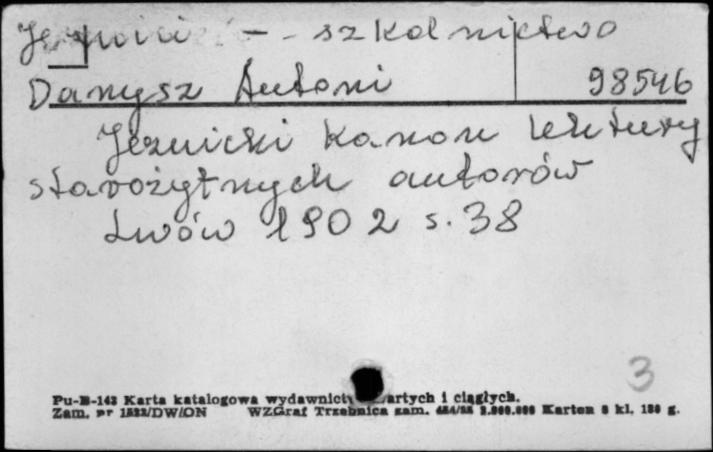 Jezuici - - szkolnictwo
Danysz Antoni 98546
Jezuicki kanon lektury
starożytnych autorów
Lwów 1902 s. 38
3
Pu-B-143 Karta katalogowa wydawnictw zwartych i ciągłych.
Zam. nr 1532/DW/ON WZGraf Trzebnica zam. Karton 8 kl. 180 g.